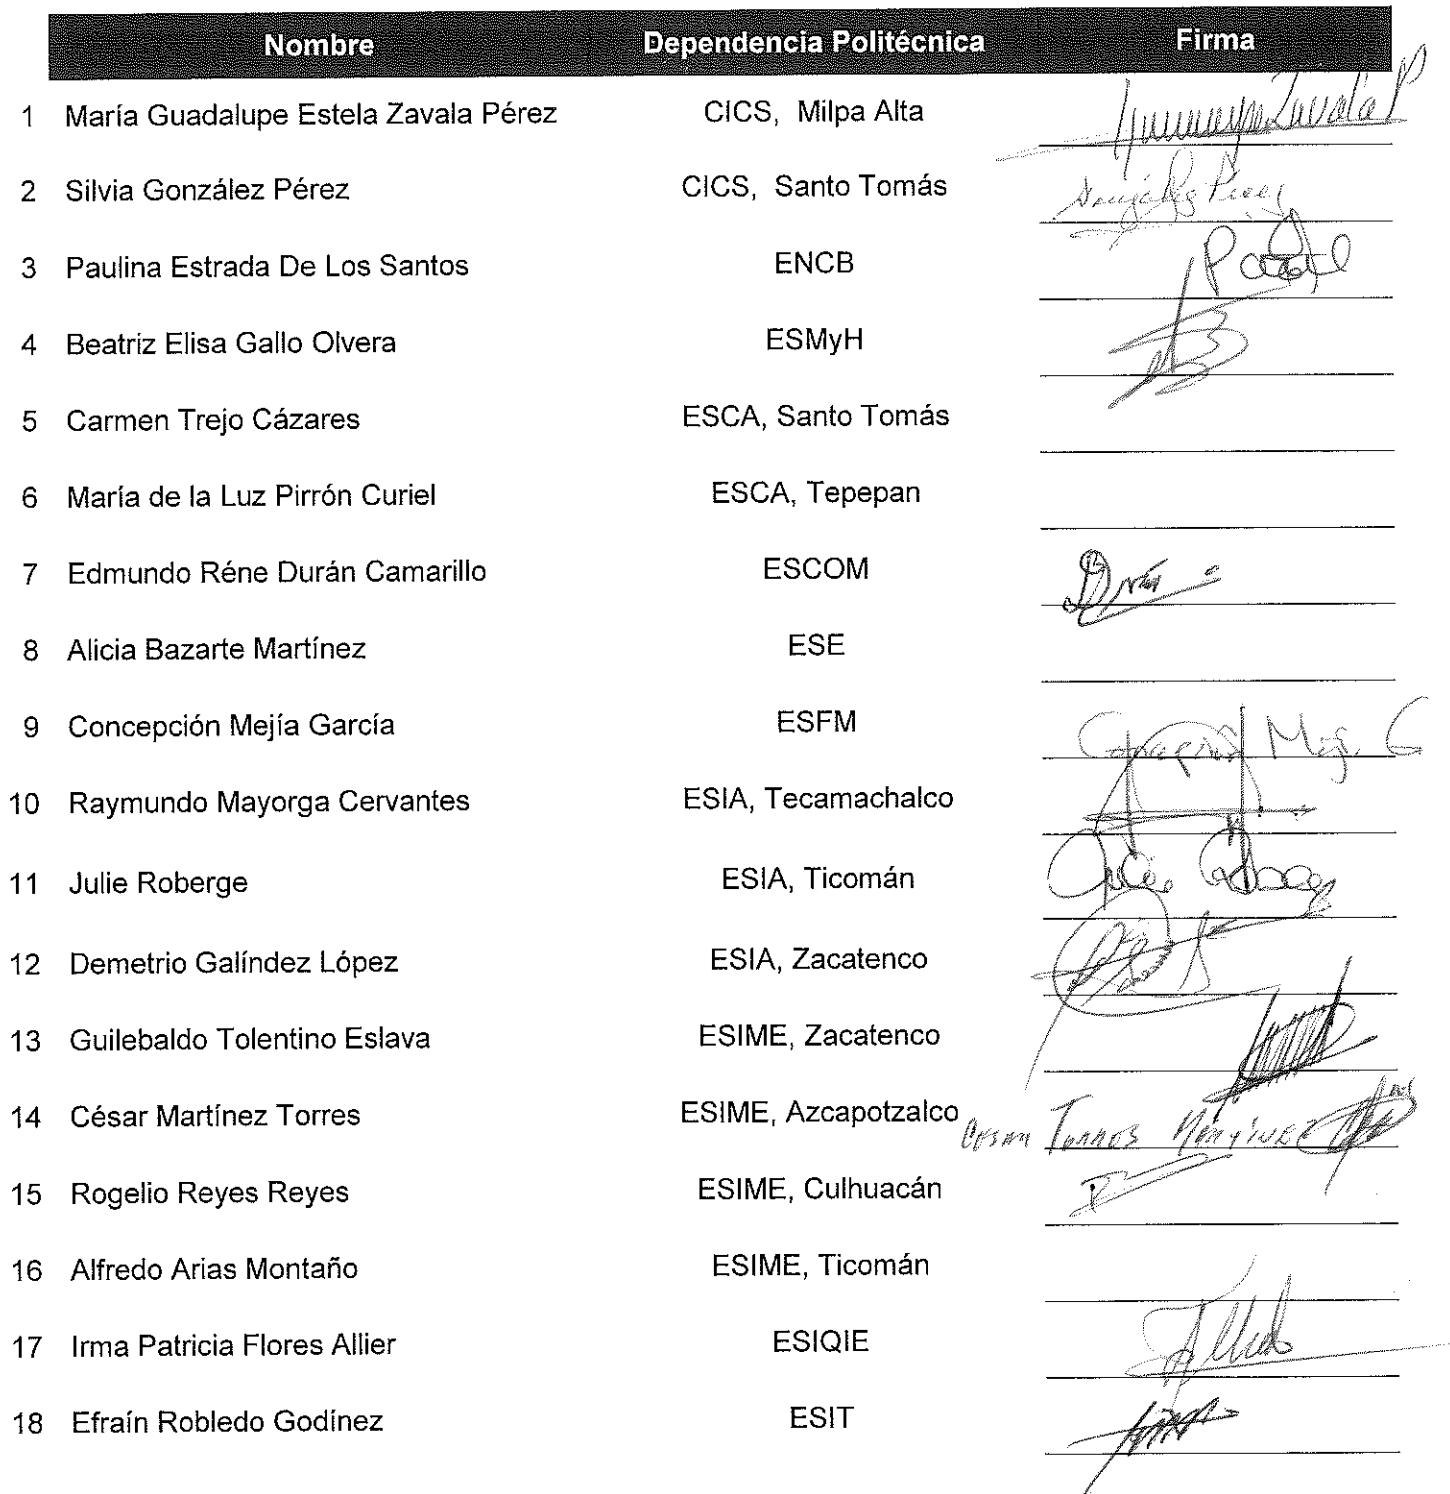 Nombre Dependencia Politécnica Firma
1 María Guadalupe Estela Zavala Pérez CICS, Milpa Alta Zavala P
2 Silvia González Pérez CICS, Santo Tomás González Pérez
3 Paulina Estrada De Los Santos ENCB
4 Beatriz Elisa Gallo Olvera ESMyH
5 Carmen Trejo Cázares ESCA, Santo Tomás
6 María de la Luz Pirrón Curiel ESCA, Tepepan
7 Edmundo Réne Durán Camarillo ESCOM
8 Alicia Bazarte Martínez ESE
9 Concepción Mejía García ESFM
10 Raymundo Mayorga Cervantes ESIA, Tecamachalco
11 Julie Roberge ESIA, Ticomán Julie Roberge
12 Demetrio Galíndez López ESIA, Zacatenco
13 Guilebaldo Tolentino Eslava ESIME, Zacatenco
14 César Martínez Torres ESIME, Azcapotzalco CESAR TORRES MARTÍNEZ
15 Rogelio Reyes Reyes ESIME, Culhuacán
16 Alfredo Arias Montaño ESIME, Ticomán
17 Irma Patricia Flores Allier ESIQIE
18 Efraín Robledo Godínez ESIT